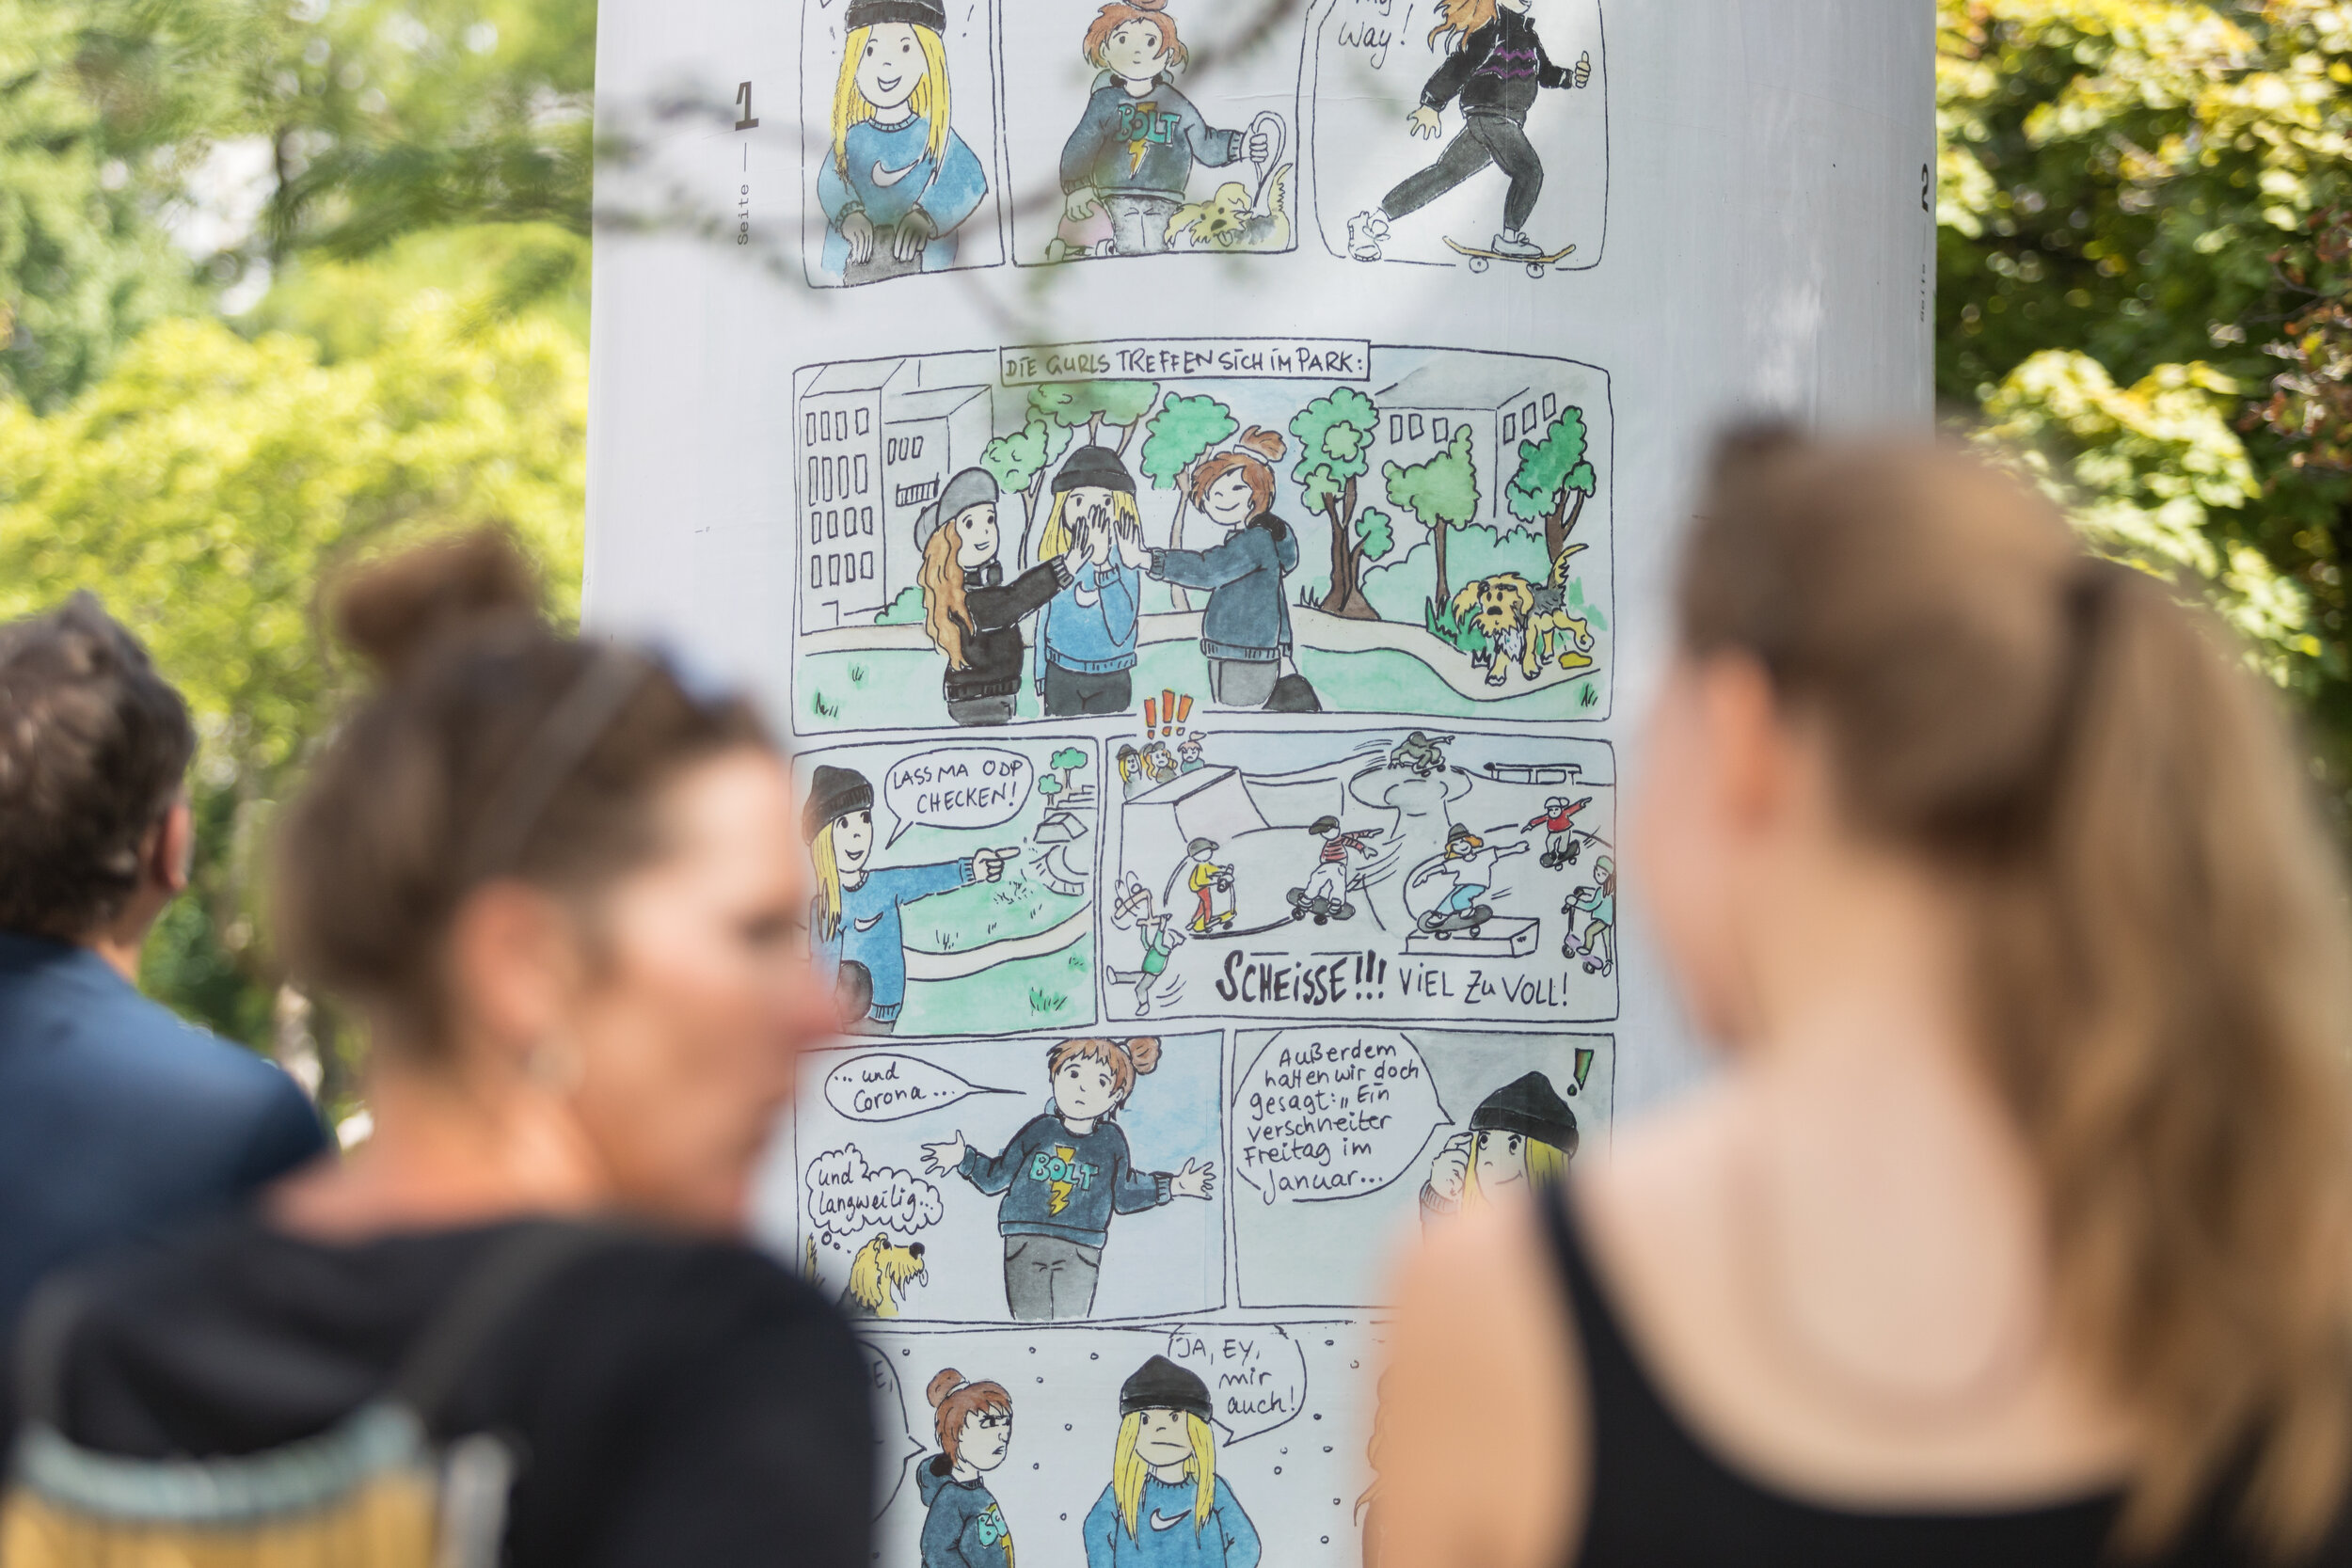 Way!
1
Seite —
BOLT
2
Seite —
DIE GURLS TREFFEN SICH IM PARK:
!!!
LASS MA ODP
CHECKEN!
SCHEISSE!!! VIEL ZU VOLL!
... und
Corona ...
und
langweilig...
BOLT
Außerdem
hatten wir doch
gesagt: „Ein
verschneiter
Freitag im
Januar...
!
JA, EY,
mir
auch!